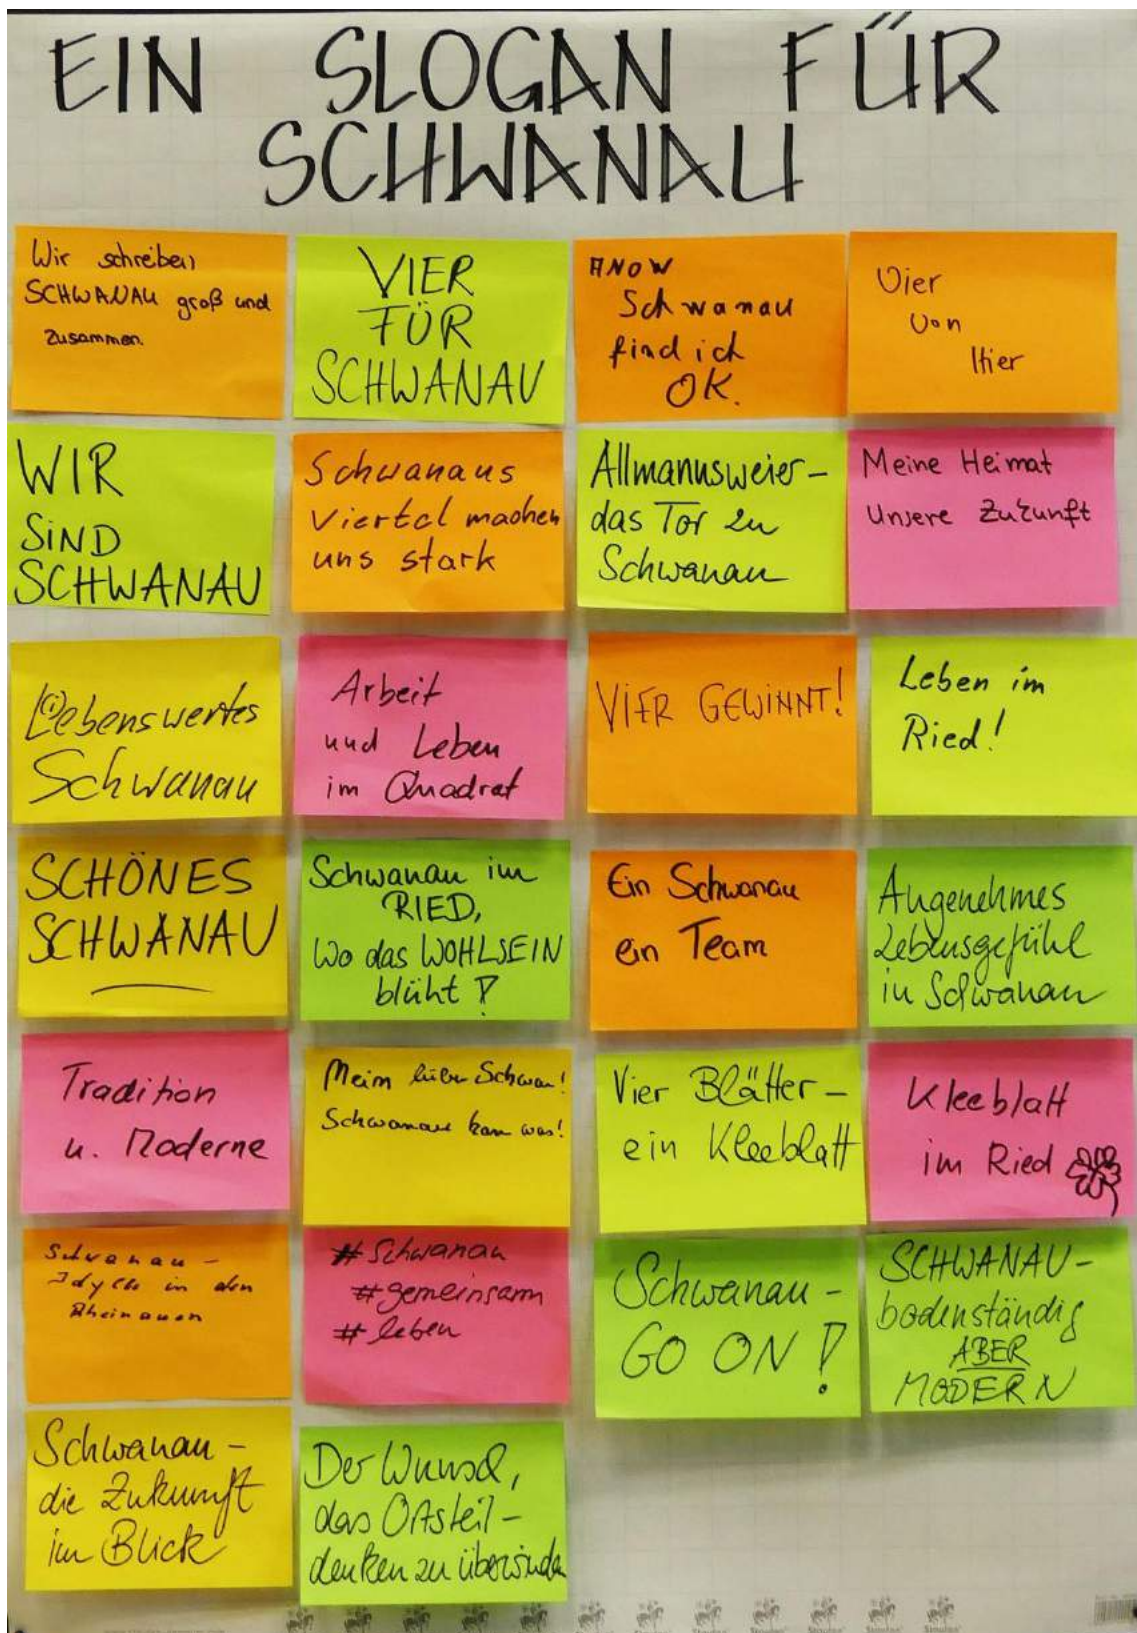 EIN SLOGAN FÜR
SCHWANAU
Wir schreiben
SCHWANAU groß und
zusammen.
VIER
FÜR
SCHWANAU
ANOW
Schwanau
find ich
OK.
Vier
von
Hier
WIR
SIND
SCHWANAU
Schwanaus
Viertel machen
uns stark
Allmannsweier –
das Tor zu
Schwanau
Meine Heimat
Unsere Zukunft
Lebenswertes
Schwanau
Arbeit
und Leben
im Quadrat
VIER GEWINNT!
Leben im
Ried!
SCHÖNES
SCHWANAU
Schwanau im
RIED,
Wo das WOHLSEIN
blüht!
Ein Schwanau
ein Team
Angenehmes
Lebensgefühl
in Schwanau
Tradition
u. Moderne
Mein lieber Schwan!
Schwanau kann was!
Vier Blätter –
ein Kleeblatt
Kleeblatt
im Ried
Schwanau –
Idylle in den
Rheinauen
# Schwanau
# gemeinsam
# leben
Schwanau –
GO ON!
SCHWANAU –
bodenständig
ABER
MODERN
Schwanau –
die Zukunft
im Blick
Der Wunsch,
das Ortsteil –
denken zu überwinden